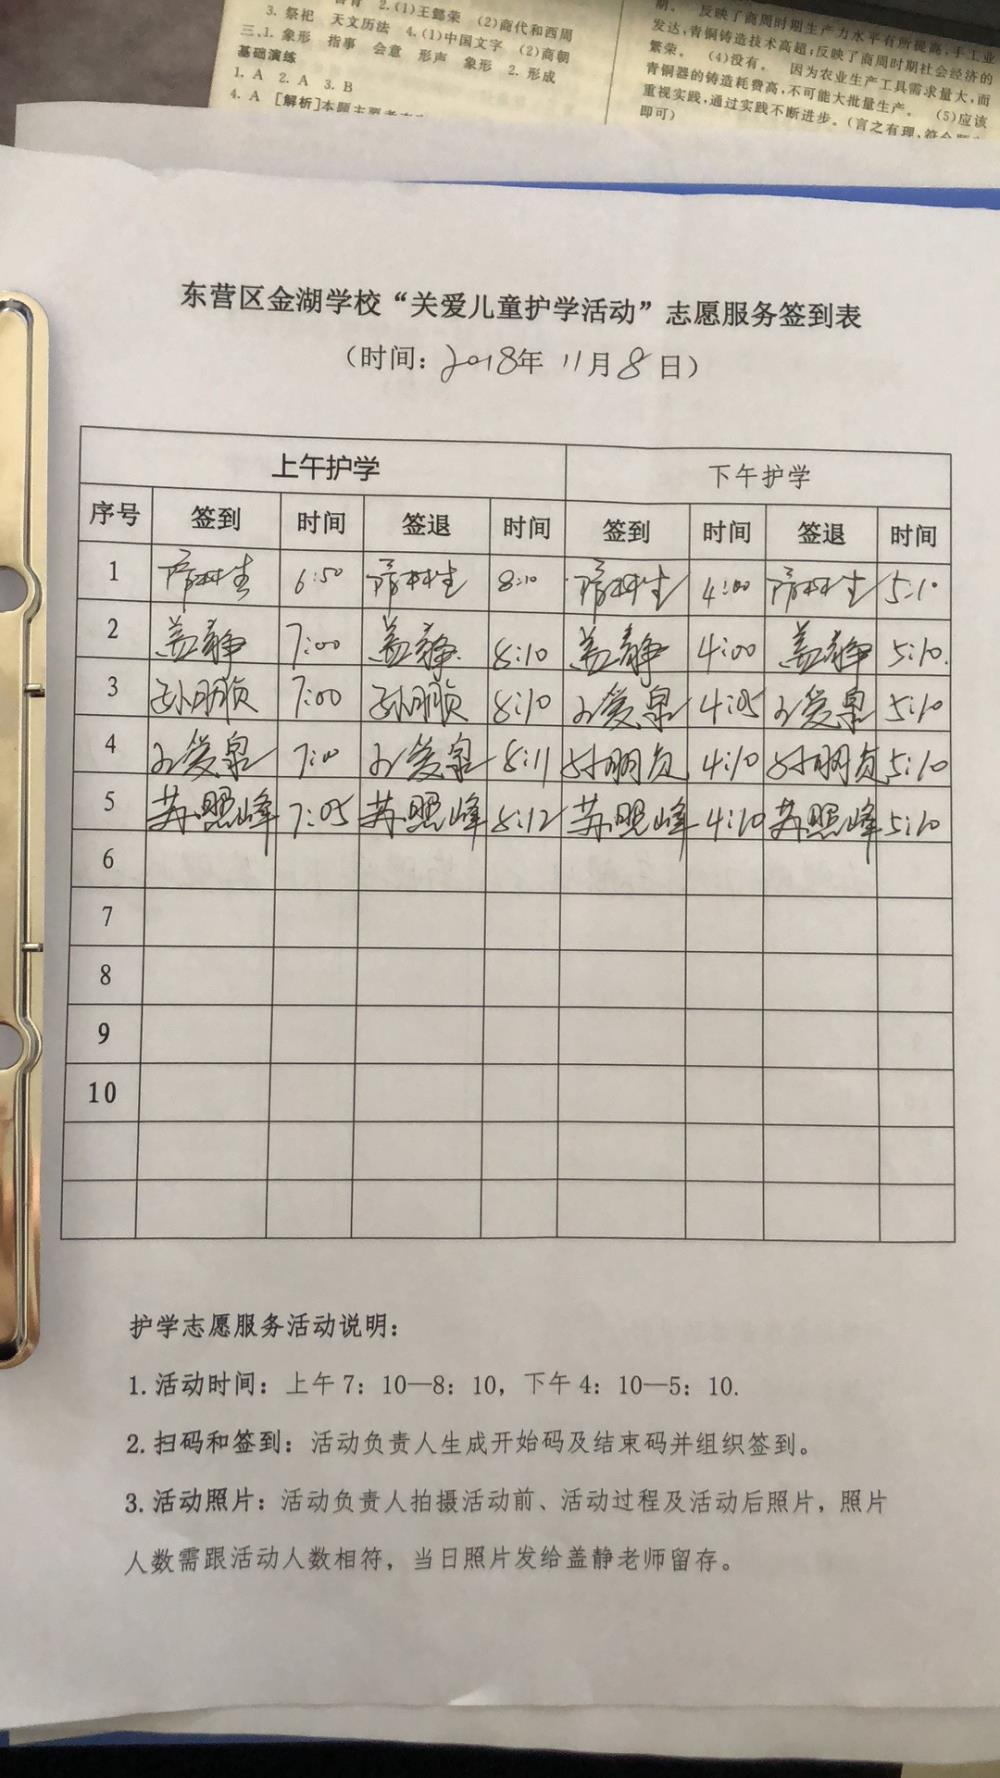 3. 祭祀 天文历法 4.(1)中国文字 (2)商朝
三、1. 象形 指事 会意 形声 象形 2. 形成
基础演练
1. A 2. A 3. B
4. A [解析]本题主要考
反映了商周时期生产力水平有所提高,手工业
发达,青铜铸造技术高超;反映了商周时期社会经济的
繁荣。 (4)没有。 因为农业生产工具需求量大,而
青铜器的铸造耗费高,不可能大批量生产。 (5)应该
重视实践,通过实践不断进步。(言之有理,符合题
即可)
东营区金湖学校“关爱儿童护学活动”志愿服务签到表
(时间: 2018年 11月 8 日)
上午护学 下午护学
序号 签到 时间 签退 时间 签到 时间 签退 时间
1 6:50 8:10 4:00 5:10
2 盖静 7:00 盖静 8:10 盖静 4:00 盖静 5:10
3 7:00 8:10 4:05 5:10
4 7:00 8:11 4:10 5:10
5 苏照峰 7:05 苏照峰 8:12 苏照峰 4:10 苏照峰 5:10
6
7
8
9
10
护学志愿服务活动说明:
1. 活动时间:上午 7:10—8:10,下午 4:10—5:10.
2. 扫码和签到:活动负责人生成开始码及结束码并组织签到。
3. 活动照片:活动负责人拍摄活动前、活动过程及活动后照片,照片
人数需跟活动人数相符,当日照片发给盖静老师留存。